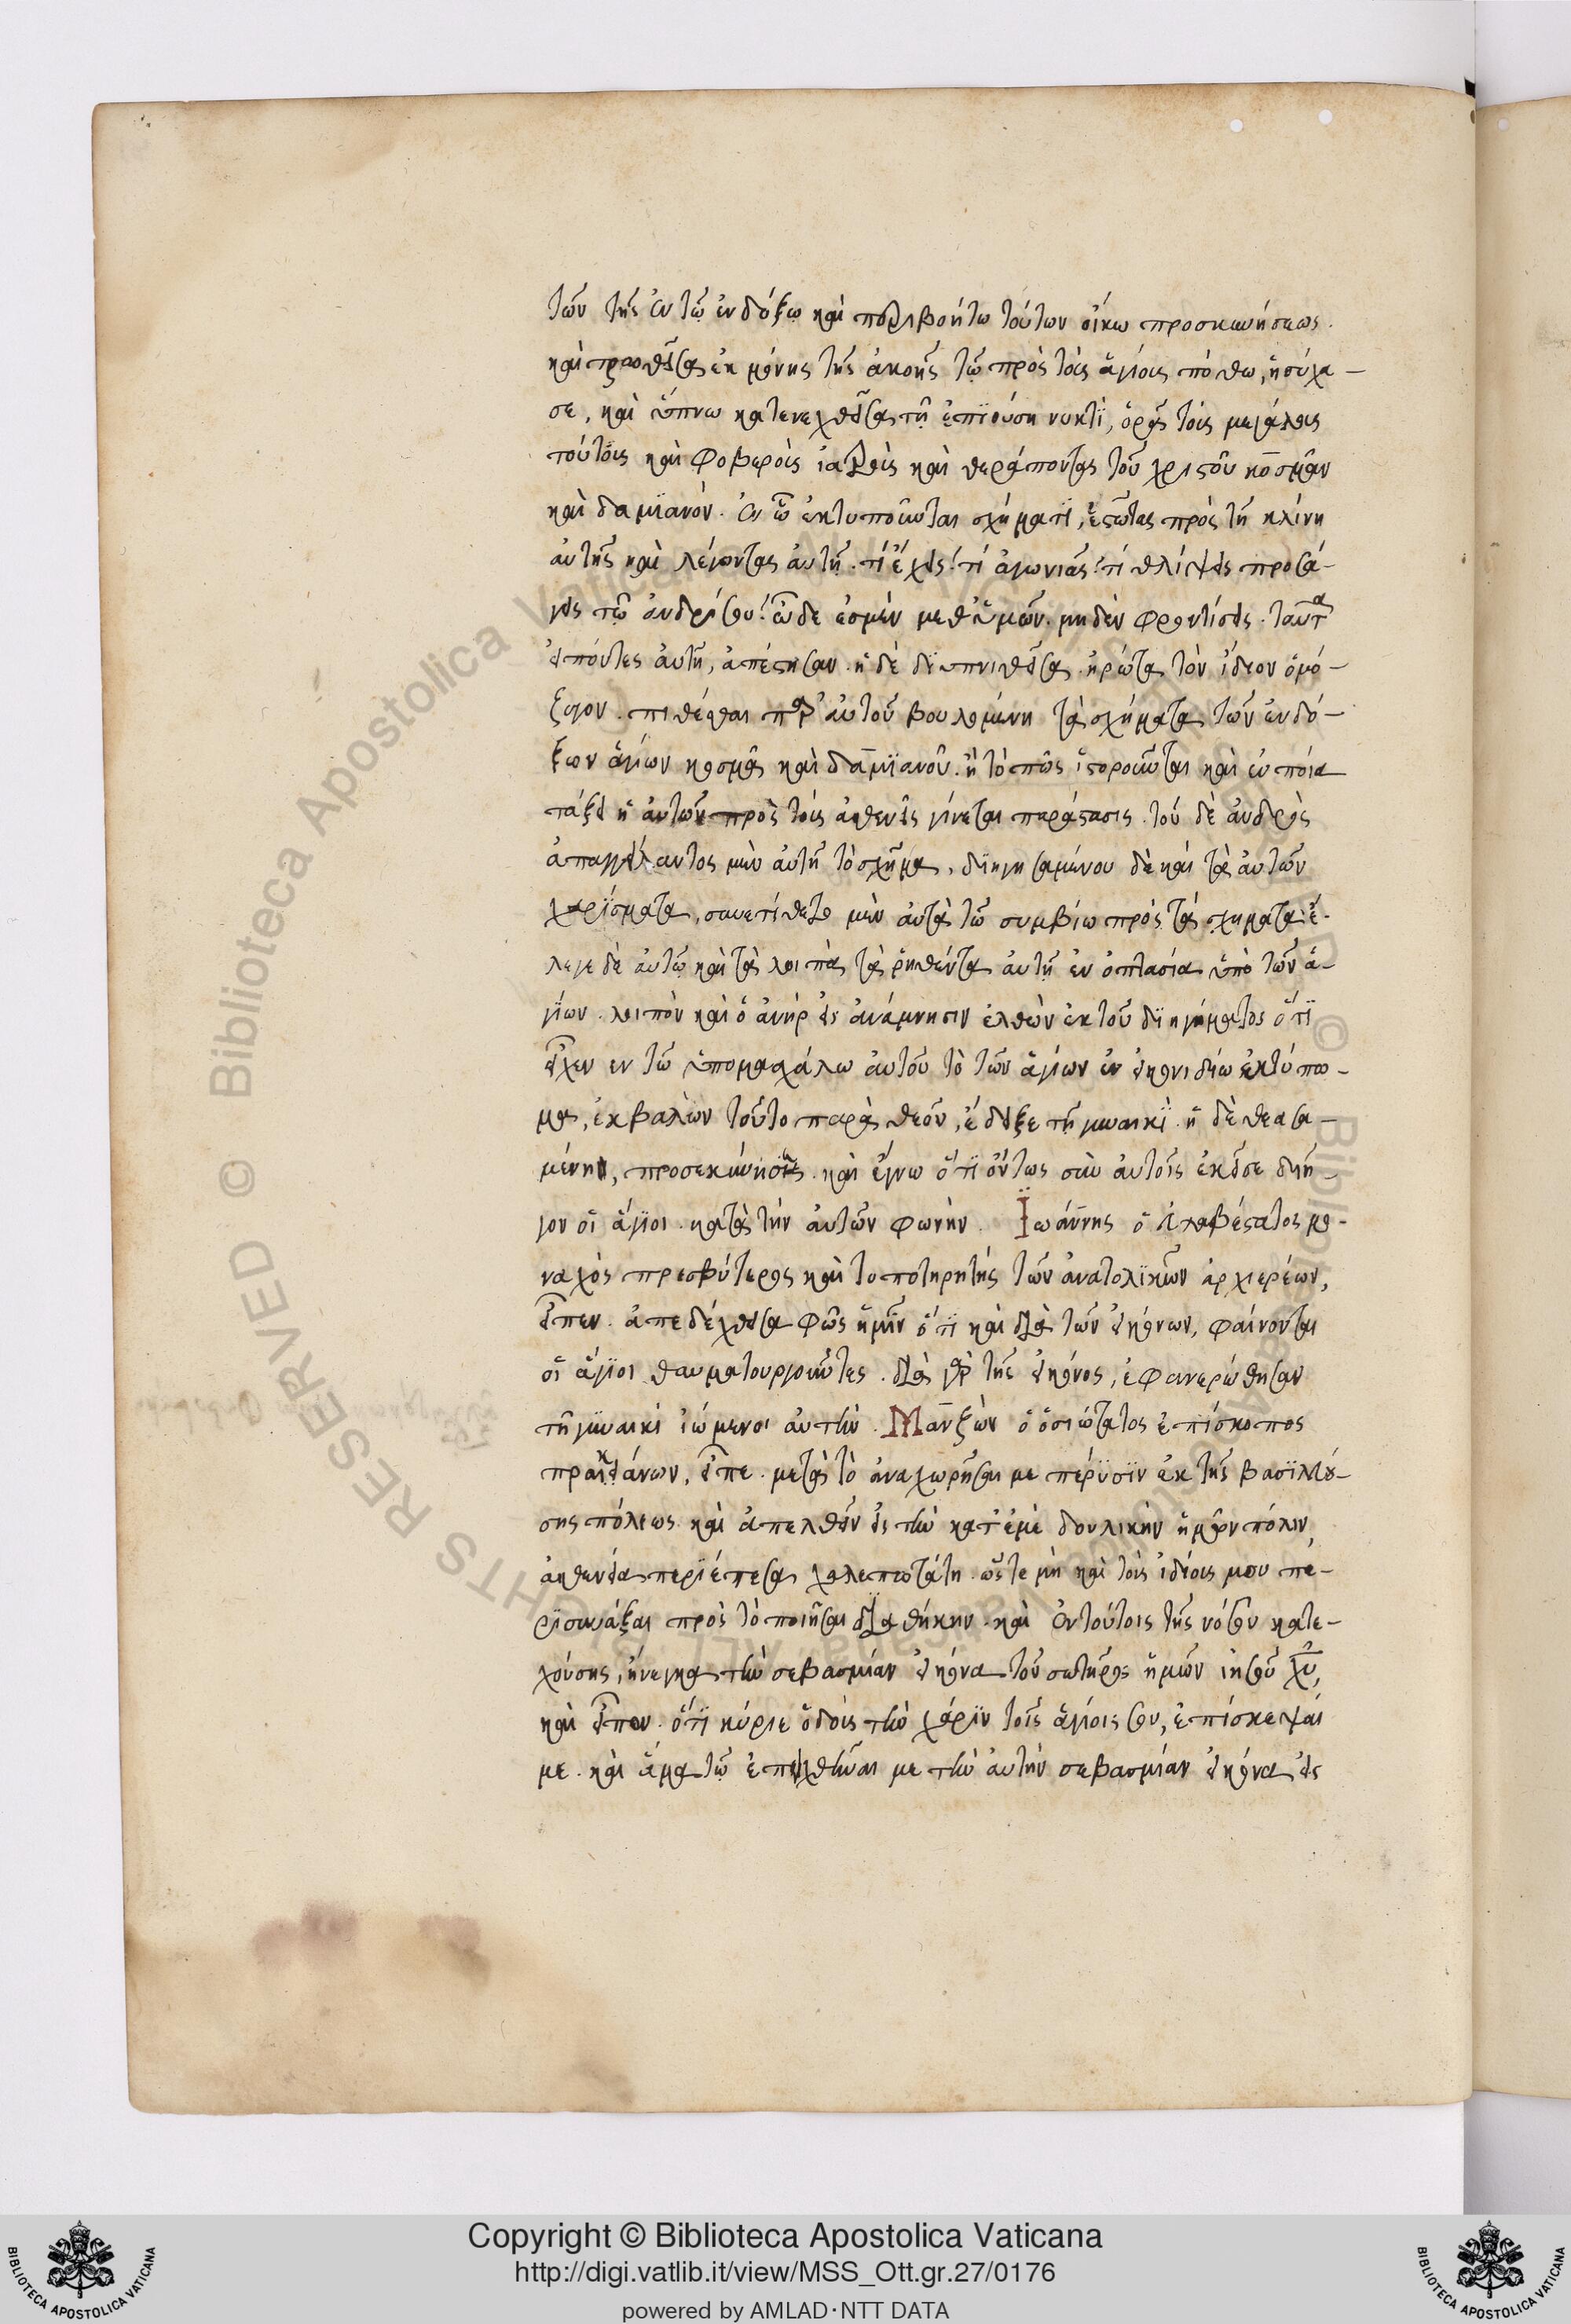 τῶν τῆς ἐν τῷ ἐνδόξω καὶ πολυβοήτω τούτων οἴκω προσκυνήσεως.
καὶ τρωθεῖσα ἐκ μόνης τῆς ἀκοῆς τῷ πρὸς τοὺς ἁγίους πόθω, ἡσύχα-
σε, καὶ ὕπνω κατενεχθεῖσα τῇ ἐπϊούση νυκτῒ, ὁρᾷ τοὺς μεγάλους
τούτους καὶ φοβεροὺς ἰατροὺς καὶ θεράποντας τοῦ χριστοῦ κοσμᾶν
καὶ δαμϊανόν. ἐν ὧ ἐκτυποῦνται σχήματϊ, ἑστῶτας πρὸς τῇ κλίνη
αὐτῆς καὶ λέγοντας αὐτῇ. τί ἔχεις; τί ἀγωνιᾶς; τί θλίψεις προσά-
γεις τῷ ἀνδρί σου; ὧδε ἐσμὲν μεθ' ὑμῶν. μηδὲν φροντίσεις. ταῦτα
εἰπόντες αὐτῇ, ἀπέστησαν. ἡ δὲ δϊυπνισθεῖσα ἠρώτα τὸν ἴδιον ὁμό-
ζυγον. πιθέσθαι παρ' αὐτοῦ βουλομένη τὰ σχήματα τῶν ἐνδό-
ξων ἁγίων κοσμᾶ καὶ δαμϊανοῦ. ἢ τὸ πῶς ἱστοροῦνται καὶ ἐν ποία
τάξει ἡ αὐτῶν πρὸς τοὺς ἀσθενεῖς γίνεται παράστασις. τοῦ δὲ ἀνδρὸς
ἀπαγγείλαντος μὲν αὐτῇ τὸ σχῆμα, δϊηγησαμένου δὲ καὶ τὰ αὐτῶν
χαρίσματα, συνετίθετο μὲν αὐτὰ τῷ συμβίω πρὸς τὰ σχήματα· ἔ-
λεγε δὲ αὐτῷ καὶ τὰ λοιπὰ τὰ ῥηθέντα αὐτῇ ἐν ὀπτασία ὑπὸ τῶν ἁ-
γίων. λοιπὸν καὶ ὁ ἀνὴρ εἰς ἀνάμνησιν ἐλθὼν ἐκ τοῦ δϊηγήματος ὅτϊ
εἶχεν ἐν τῷ ὑπομασχάλω αὐτοῦ τὸ τῶν ἁγίων ἐν εἰκονιδίω ἐκτύπω-
μα, ἐκβαλὼν τοῦτο παρὰ θεὸν, ἔδειξε τῇ γυναικὶ. ἡ δὲ θεασα-
μένη, προσεκύνησε καὶ ἔγνω ὅτϊ ὄντως σὺν αὐτοῖς ἐκεῖσε διῆ-
γον οἱ ἅγϊοι κατὰ τὴν αὐτῶν φωνὴν. Ἰωάννης ὁ εὐλαβέστατος μο-
ναχὸς πρεσβύτερος καὶ τοποτηρητὴς τῶν ἀνατολϊκῶν ἀρχιερέων,
εἶπεν. ἀπεδέχθεισα φῶς ἡμῖν ὅτϊ καὶ διὰ τῶν εἰκόνων, φαίνονται
οἱ ἅγϊοι θαυματουργοῦντες. διὰ γὰρ τῆς εἰκόνος, ἐφανερώθησαν
τῇ γυναικὶ ἰώμενοι αὐτὴν. Μανζὼν ὁ ὁσιώτατος ἐπίσκοπος
πρακάνων, εἶπε. μετὰ τὸ ἀναχωρῆσαι με πέρϋσϊν ἐκ τῆς βασϊλευού-
σης πόλεως καὶ ἀπελθεῖν εἰς τὴν κατ' ἐμὲ δουλικὴν ἡμῶν πόλιν,
ἀσθενεία περϊέπεσα χαλεπωτάτη. ὥστε μὴ καὶ τοὺς ἰδίους μου πε-
ρϊσυνάξαι πρὸς τὸ ποιῆσαι διαθήκην. καὶ ἐν τούτοις τῆς νόσου κατε-
χούσης, ἤνεγκα τὴν σεβασμίαν εἰκόνα τοῦ σωτῆρος ἡμῶν ἰησοῦ χυ,
καὶ εἶπον. ὅτϊ κύριε ὁ δοὺς τὴν χάρϊν τοῖς ἁγίοις σου, ἐπίσκεψαί
με. καὶ ἅμα τῷ ἐπιτεθῆναι με τὴν αὐτὴν σεβασμίαν εἰκόνα εἰς
Copyright © Biblioteca Apostolica Vaticana
http://digi.vatlib.it/view/MSS_Ott.gr.27/0176
powered by AMLAD·NTT DATA
BIBLIOTECA APOSTOLICA VATICANA
BIBLIOTECA APOSTOLICA VATICANA